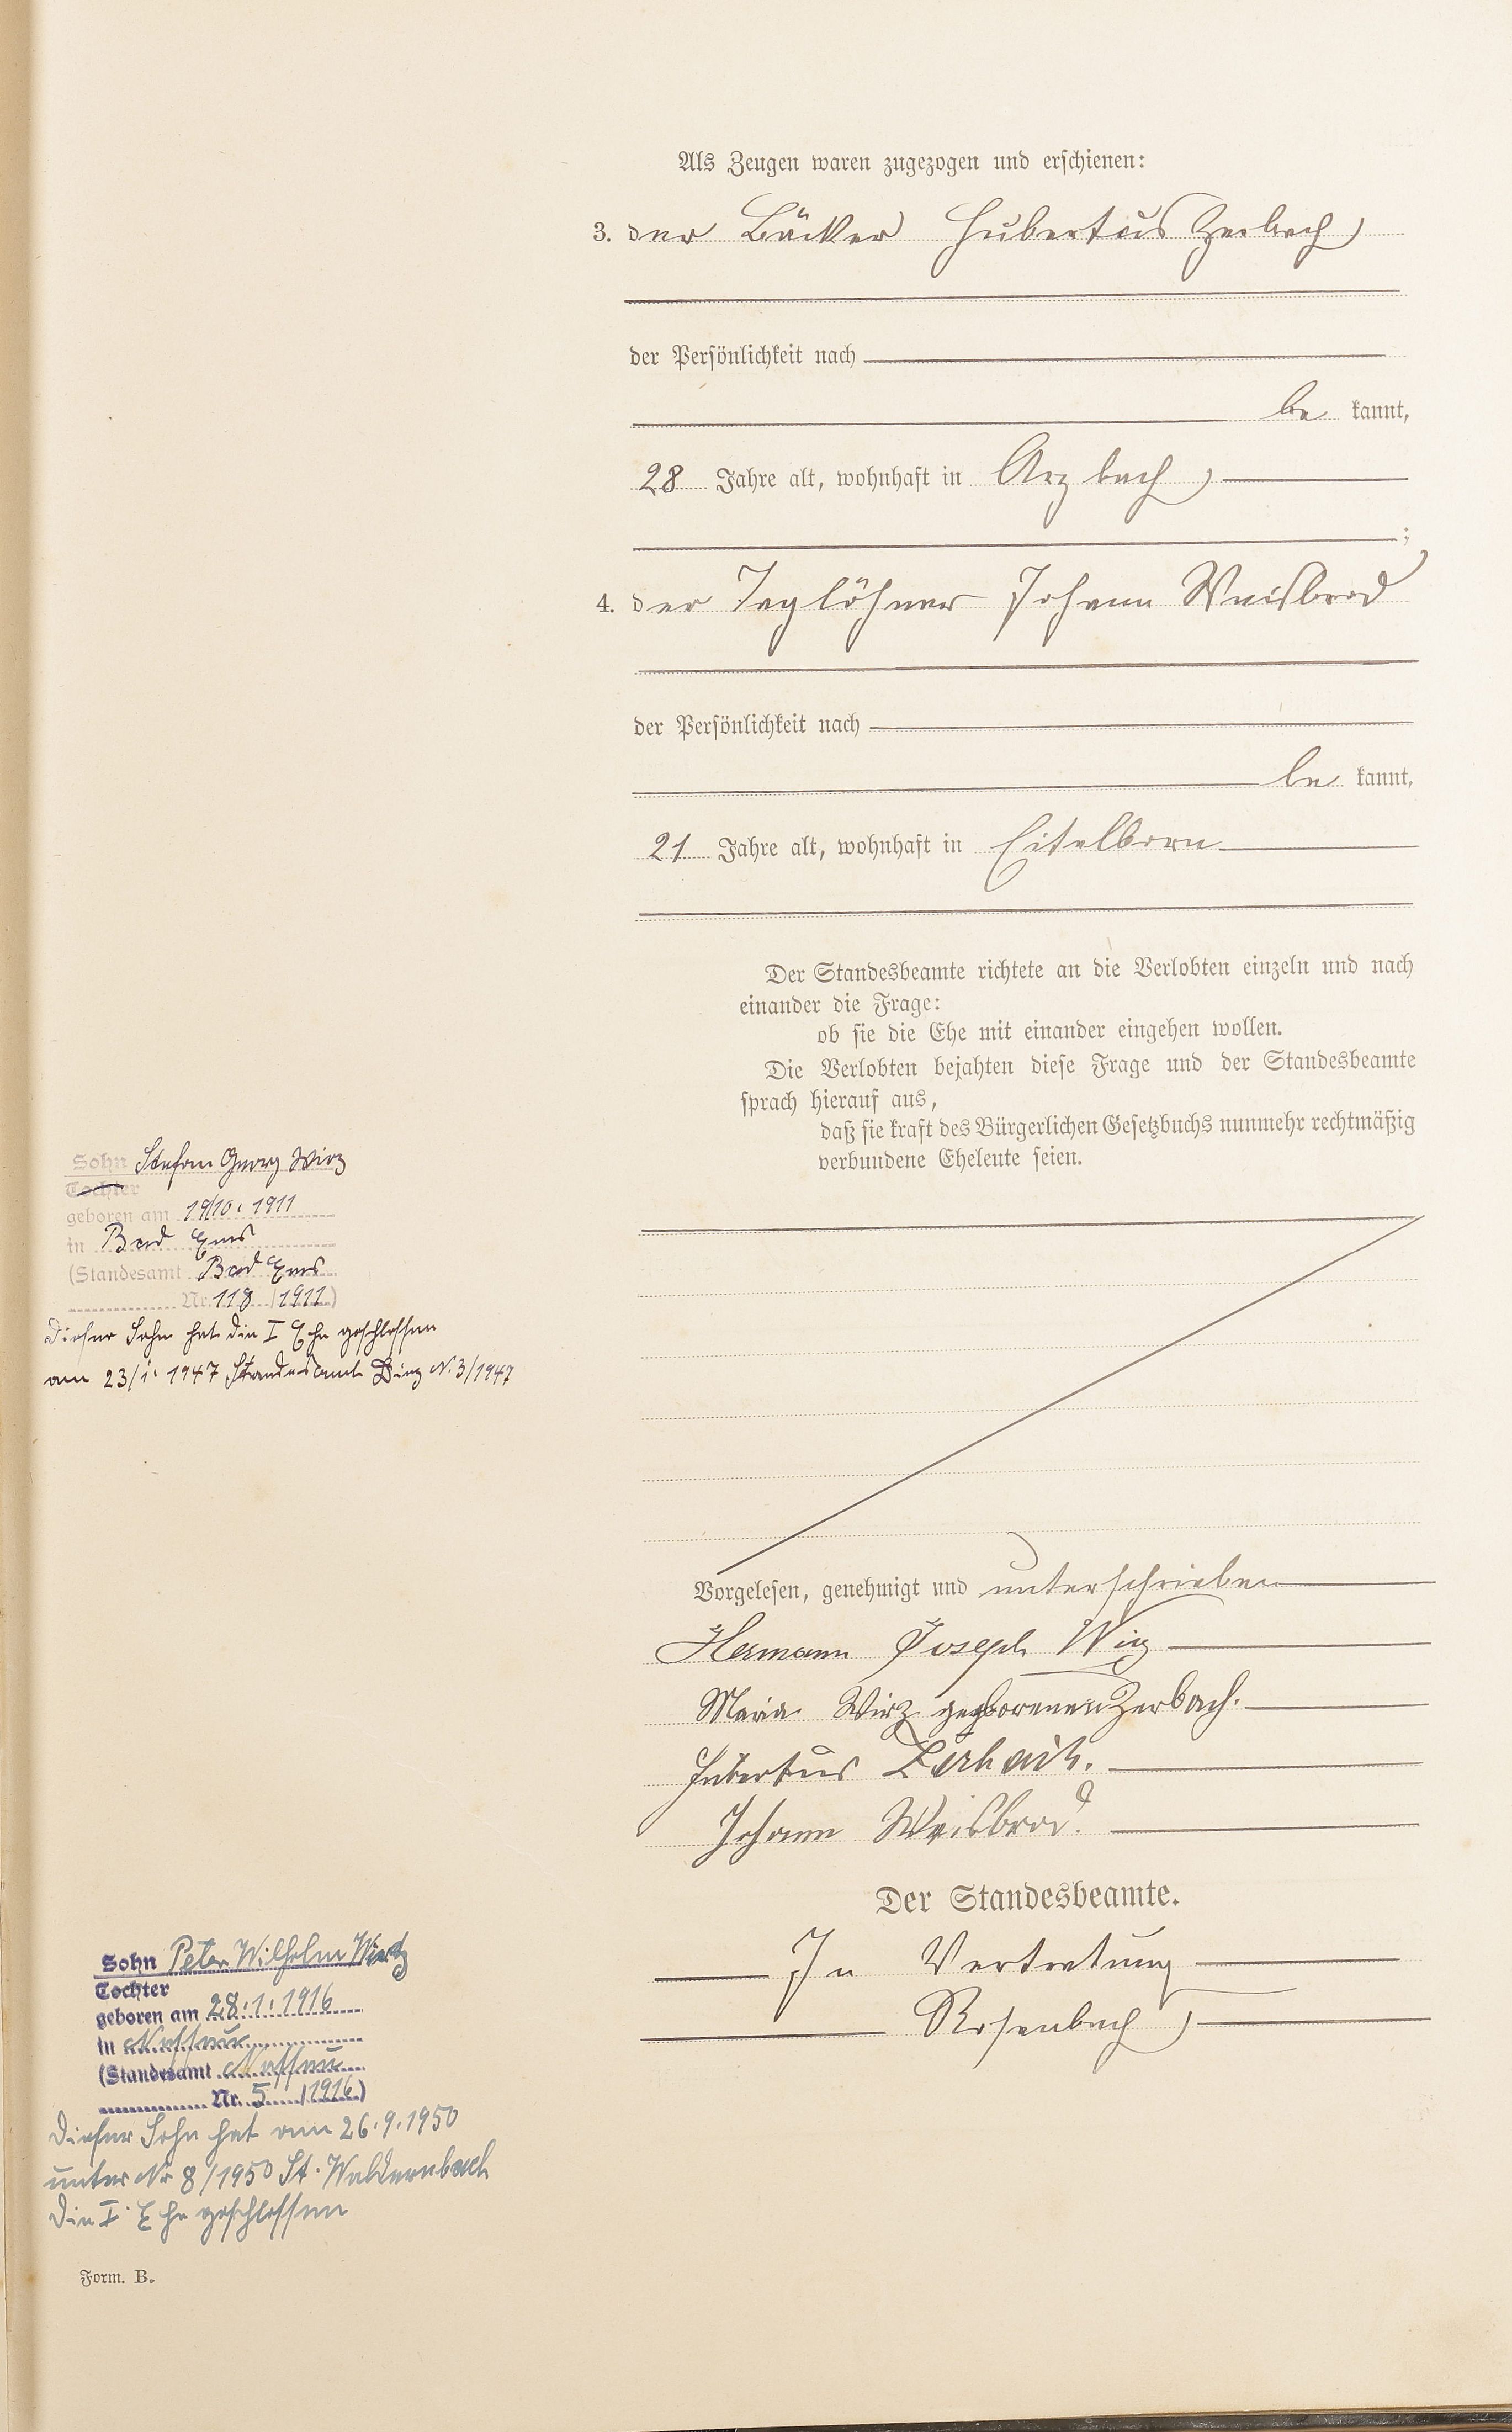 Als Zeugen waren zugezogen und erschienen:
3. der Bäcker Hubertus Zerbach
der Persönlichkeit nach
be kannt,
28 Jahre alt, wohnhaft in Arzbach
;
4. der Taglöhner Johann Weisbrod
der Persönlichkeit nach
be kannt,
21 Jahre alt, wohnhaft in Eitelborn
Der Standesbeamte richtete an die Verlobten einzeln und nach
einander die Frage:
ob sie die Ehe mit einander eingehen wollen.
Die Verlobten bejahten diese Frage und der Standesbeamte
sprach hierauf aus,
daß sie kraft des Bürgerlichen Gesetzbuchs nunmehr rechtmäßig
verbundene Eheleute seien.
Vorgelesen, genehmigt und unterschrieben
Hermann Joseph Wirz
Maria Wirz geborenen Zerbach.
Hubertus Zerbach.
Johann Weisbrod.
Der Standesbeamte.
In Vertretung
Rosenbach
Sohn Stefan Georg Wirz
Tochter
geboren am 19/10. 1911
in Bad Ems
(Standesamt Bad Ems
Nr. 118 /1911)
Dieser Sohn hat die I Ehe geschlossen
am 23/1. 1947 Standesamt N. 3/1947
Sohn Peter Wilhelm Wirtz
Tochter
geboren am 28.1.1916
in Nassau
(Standesamt Nassau
Nr. 5 /1916)
Dieser Sohn hat am 26.9.1950
unter Nr 8/1950 St. Waldernbach
die I. Ehe geschlossen
Form. B.